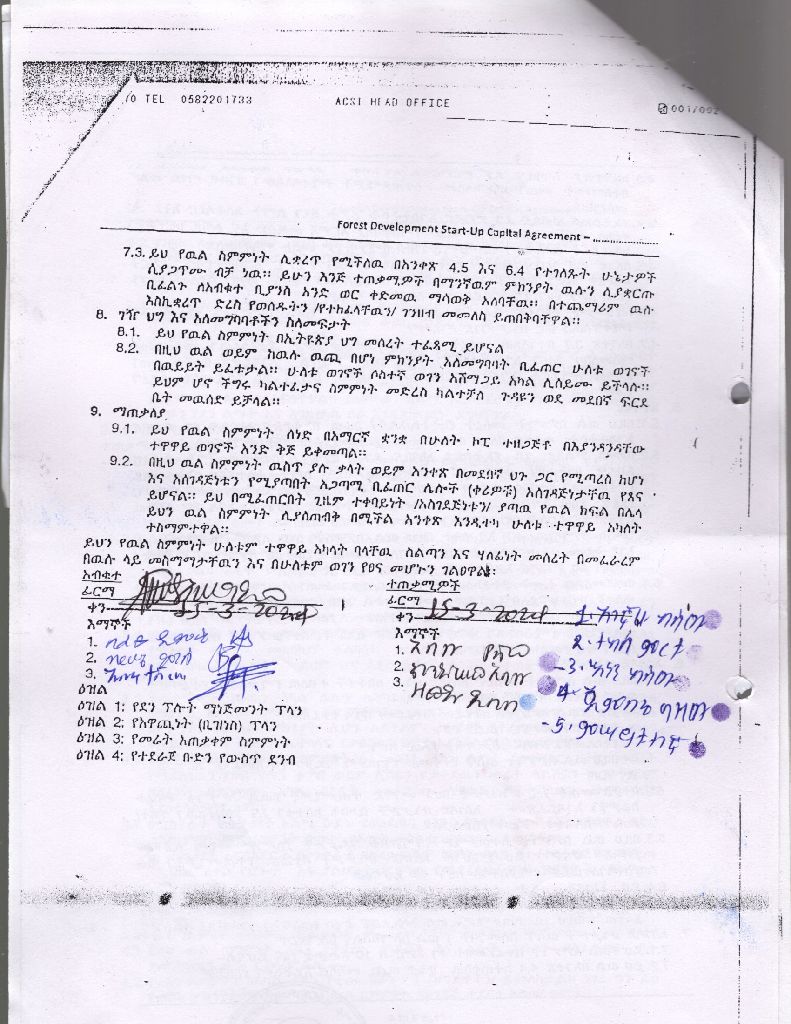 /0 TEL 0582201733 ACSI HEAD OFFICE 001/002
Forest Development Start-Up Capital Agreement – ....................
7.3. ይህ የዉል ስምምነት ሊቋረጥ የሚችለዉ በአንቀጽ 4.5 እና 6.4 የተገለጹት ሁኔታዎች
ሲያጋጥሙ ብቻ ነዉ፡፡ ይሁን እንጅ ተጠቃሚዎች በማንኛዉም ምክንያት ዉሉን ሊያቋርጡ
ቢፈልጉ ለአብቁተ ቢያንስ አንድ ወር ቀድመዉ ማሳወቅ አለባቸዉ፡፡ በተጨማሪም ዉሉ
እስኪቋረጥ ድረስ የወሰዱትን /የተከፈላቸዉን/ ገንዘብ መመለስ ይጠበቅባቸዋል፡፡
8. ገዥ ህግ እና አለመግባባቶችን ስለመፍታት
8.1. ይህ የዉል ስምምነት በኢትዩጵያ ህግ መሰረት ተፈጻሚ ይሆናል
8.2. በዚህ ዉል ወይም ከዉሉ ዉጪ በሆነ ምክንያት አለመግባባት ቢፈጠር ሁለቱ ወገኖች
በዉይይት ይፈቱታል፡፡ ሁለቱ ወገኖች ሶስተኛ ወገን አሸማጋይ አካል ሊሰይሙ ይችላሉ፡፡
ይህም ሆኖ ችግሩ ካልተፈታና ስምምነት መድረስ ካልተቻለ ጉዳዩን ወደ መደበኛ ፍርድ
ቤት መዉሰድ ይቻላል፡፡
9. ማጠቃለያ
9.1. ይህ የዉል ስምምነት ሰነድ በአማርኛ ቋንቋ በሁለት ኮፒ ተዘጋጅቶ በእያንዳንዳቸው
ተዋዋይ ወገኖች አንድ ቅጅ ይቀመጣል፡፡
9.2. በዚህ ዉል ስምምነት ዉስጥ ያሉ ቃላት ወይም አንቀጽ በመደበኛ ህጉ ጋር የሚጣረስ ከሆነ
እና አስገዳጅነቱን የሚያጣበት አጋጣሚ ቢፈጠር ሌሎች (ቀሪዎቹ) አስገዳጅነታቸዉ የጸና
ይሆናል፡፡ ይህ በሚፈጠርበት ጊዜም ተቀባይነት /አስገደጅነቱን/ ያጣዉ የዉል ክፍል በሌላ
ይህን ዉል ስምምነት ሊያስጠብቅ በሚችል አንቀጽ እንዲተካ ሁለቱ ተዋዋይ አካላት
ተስማምተዋል፡፡
ይህን የዉል ስምምነት ሁለቱም ተዋዋይ አካላት ባላቸዉ ስልጣን እና ሃላፊነት መሰረት በመፈራረም
በዉሉ ላይ መስማማታቸዉን እና በሁለቱም ወገን የፀና መሆኑን ገልፀዋል፡
አብቁተ
ፊርማ
ቀን 15-3-2024
እማኞች
1.
2.
3.
ተጠቃሚዎች
ፊርማ
ቀን 15-3-2024
እማኞች
1. አባተ
2.
3.
1.
2.
3.
4.
5.
ዕዝል
ዕዝል 1: የደን ፕሎት ማነጅመንት ፕላን
ዕዝል 2: የአዋጪነት (ቢዝነስ) ፕላን
ዕዝል 3: የመሬት አጠቃቀም ስምምነት
ዕዝል 4: የተደራጀ ቡድን የውስጥ ደንብ